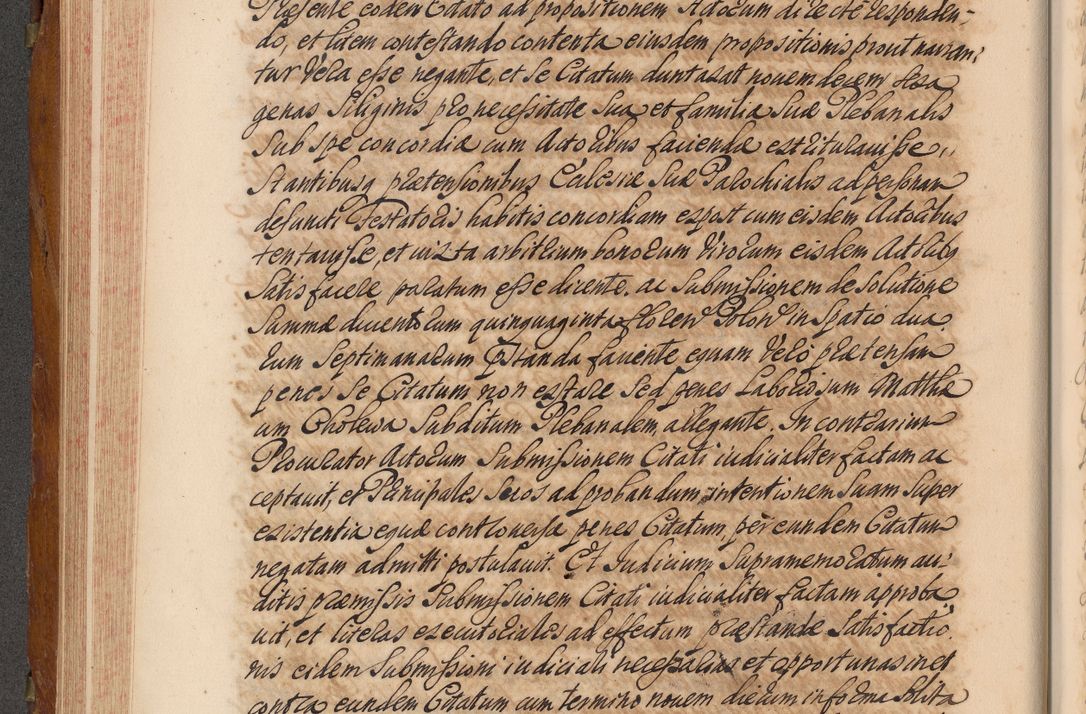 Præsente eodem Citato ad propositionem Actorum directe responden-
do, et litem contestando contenta eiusdem propositionis prout narran:
tur vera esse negante, et se Citatum duntaxat novemdecem sexa
genas Siliginis pro necessitate sua et familiæ suæ Plebanalis
sub spe concordiæ cum Actoribus faciendæ extritulavisse,
Stantibusq prætensionibus Ecclesiæ suæ Parochialis ad personam
defuncti Testatoris habitis concordiam expost cum eisdem Actoribus
tentavisse, et iuxta arbitrium bonorum virorum eisdem Actoribus
satisfacere paratum esse dicente, ac Submissionem de solutione
Summæ ducentorum quinquaginta floren Polon in spatio dua,
rum Septimanarum præstanda faciente equam vero prætensam
penes se Citatum non extare sed penes Laboriosum Matthæ
um Cholewa Subditum Plebanalem, allegante. In contrarium
Procurator Actorum Submissionem Citati iudicialiter factam ac
ceptavit, et Principales suos ad probandum intentionem suam super
existentia equæ controversæ penes Citatum, per eundem Citatum
negatam admitti postulavit. Et Iudicium supramemoratum au:
ditis præmissis Submissionem Citati iudicialiter factam approba
vit, et literas executoriales ad effectum præstandæ satisfactio,
nis eidem Submissioni iudiciali necessarias et opportunas in et
contra eundem Citatum cum termino novem dierum in forma solita